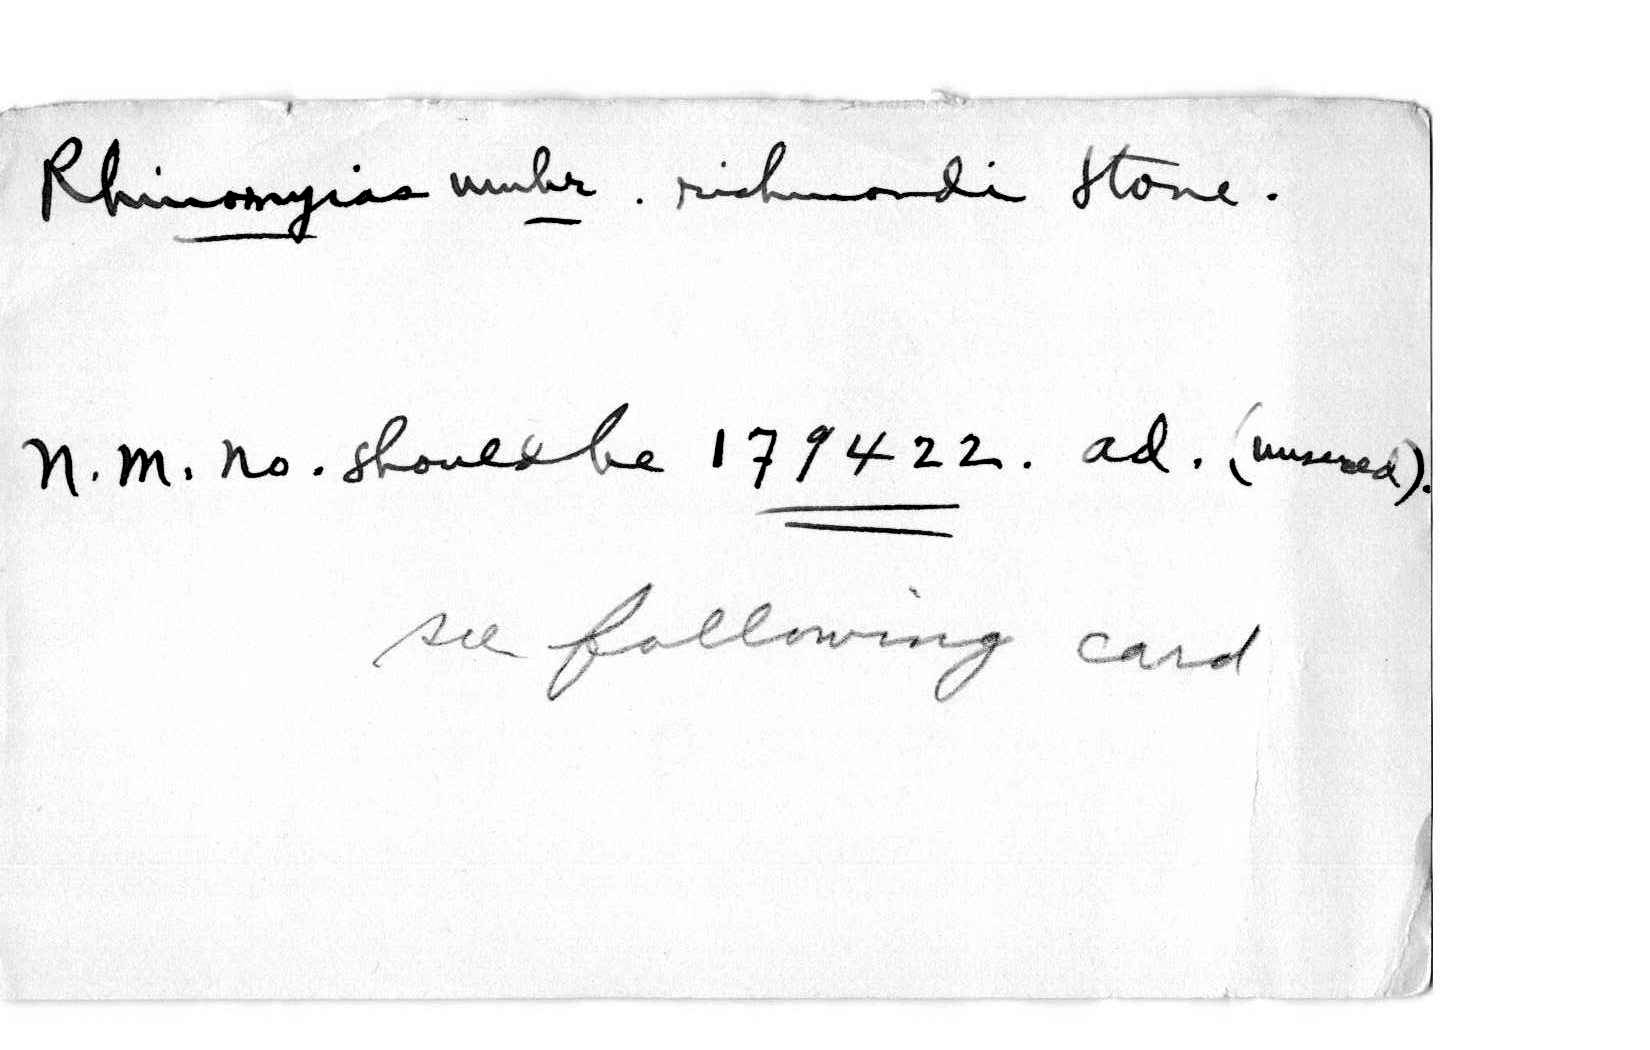 Rhinomyias umbr. richmondi Stone.
N. M. No. should be 179422. ad. (unsexed).
see following card